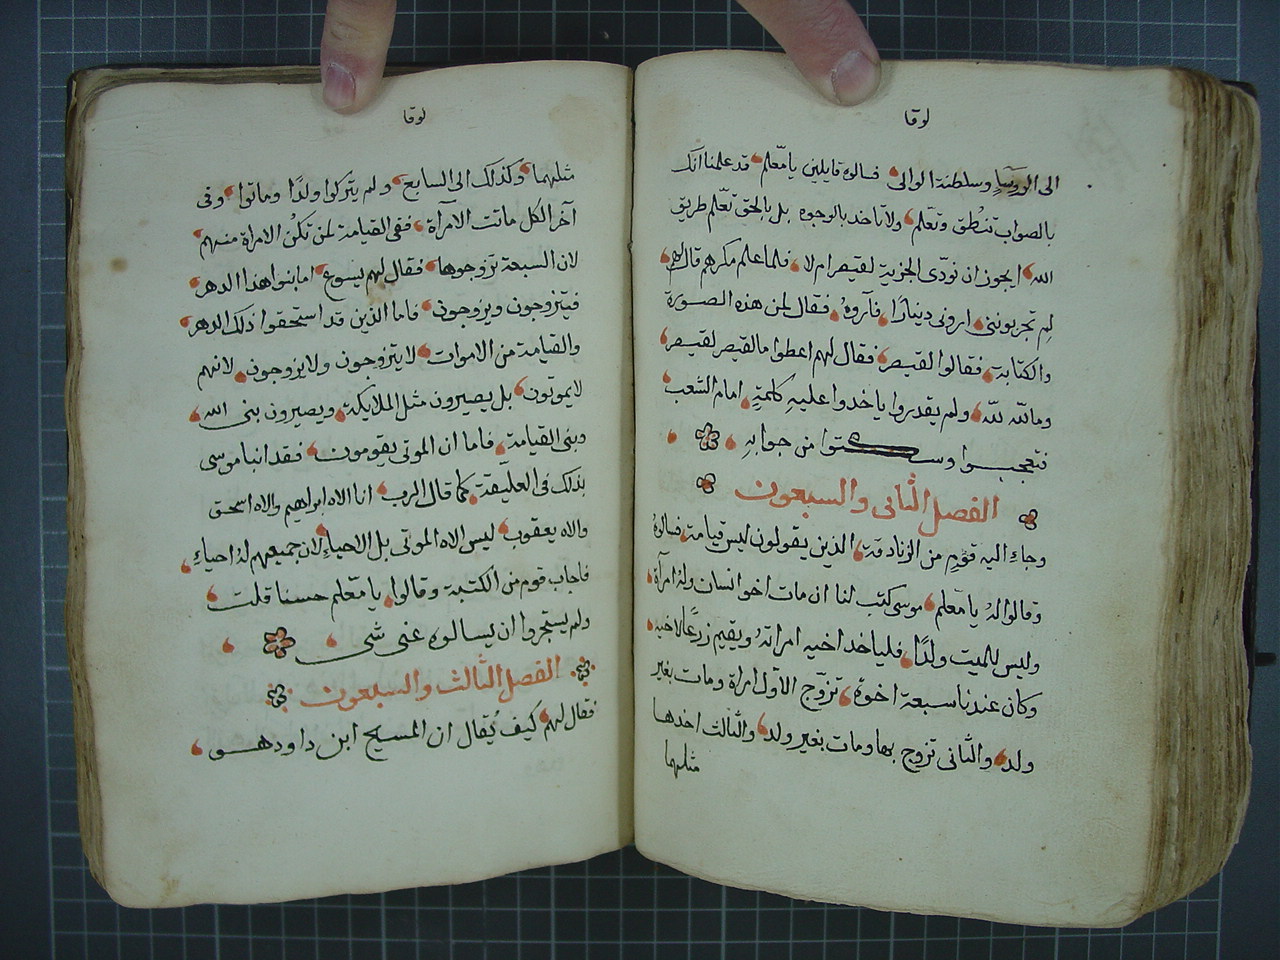 لوقا
الى الروسا وسلطنة الوالى فسالوه قايلين يا معلم قد علمنا انك
بالصواب تنطق وتعلم ولا تاخد بالوجوه بل بالحق تعلم طريق
الله ايجوز ان نودى الجزية لقيصر ام لا فلما علم مكرهم قال لهم
لم تجربوننى ارونى دينارًا فآروهُ فقال لمن هذه الصورة
والكتابة فقالوا لقيصر فقال لهم اعطوا ما لقيصر لقيصر
وما لله لله ولم يقدروا ياخدوا عليهِ كلمةٍ امام الشعب
فتعجبوا وسكتوا من جوابهِ
الفصل الثانى والسبعون
وجاء اليه قومٍ من الزنادقة الذين يقولون ليس قيامة فسالوهُ
وقالوا لهُ يا معلم موسى كتب لنا ان مات اخو انسان ولهُ امرآة
وليس للميت ولدًا فلياخد اخيه امراتهُ ويقيم زرعًا لاخيه
وكان عندنا سبعة اخوة تزوج الآول امراة ومات بغير
ولد والثانى تزوج بها ومات بغير ولد والثالث اخدها
مثلهما
لوقا
مثلهما وكذلك الى السابع ولم يتركوا ولدًا وماتوا وفى
آخر الكل ماتت الآمرآة ففى القيامة لمن تكنُ الامراة منهم
لان السبعة تزوجوها فقال لهم يسوع اما بنوا هذا الدهر
فيتزوجون ويزوجون فاما الذين قد استحقوا ذلك الدهر
والقيامة من الاموات لا يتزوجون ولا يزوجون لانهم
لا يموتون بل يصيرون مثل الملايكة ويصيرون بنى الله
وبنى القيامة فاما ان الموتى يقومون فقد انبا موسى
بذلك فى العليقة كما قال الرب انا الاه ابراهيم والاه اسحق
والاه يعقوب ليس الاه الموتى بل الاحياء لان جميعهم لهُ احياءٍ
فاجاب قوم من الكتبة وقالوا يا معلم حسنا قلت
ولم يستجروا ان يسالوه عنى شى
الفصل الثالث والسبعون
فقال لهم كيف يُقال ان المسيح ابن داود هو